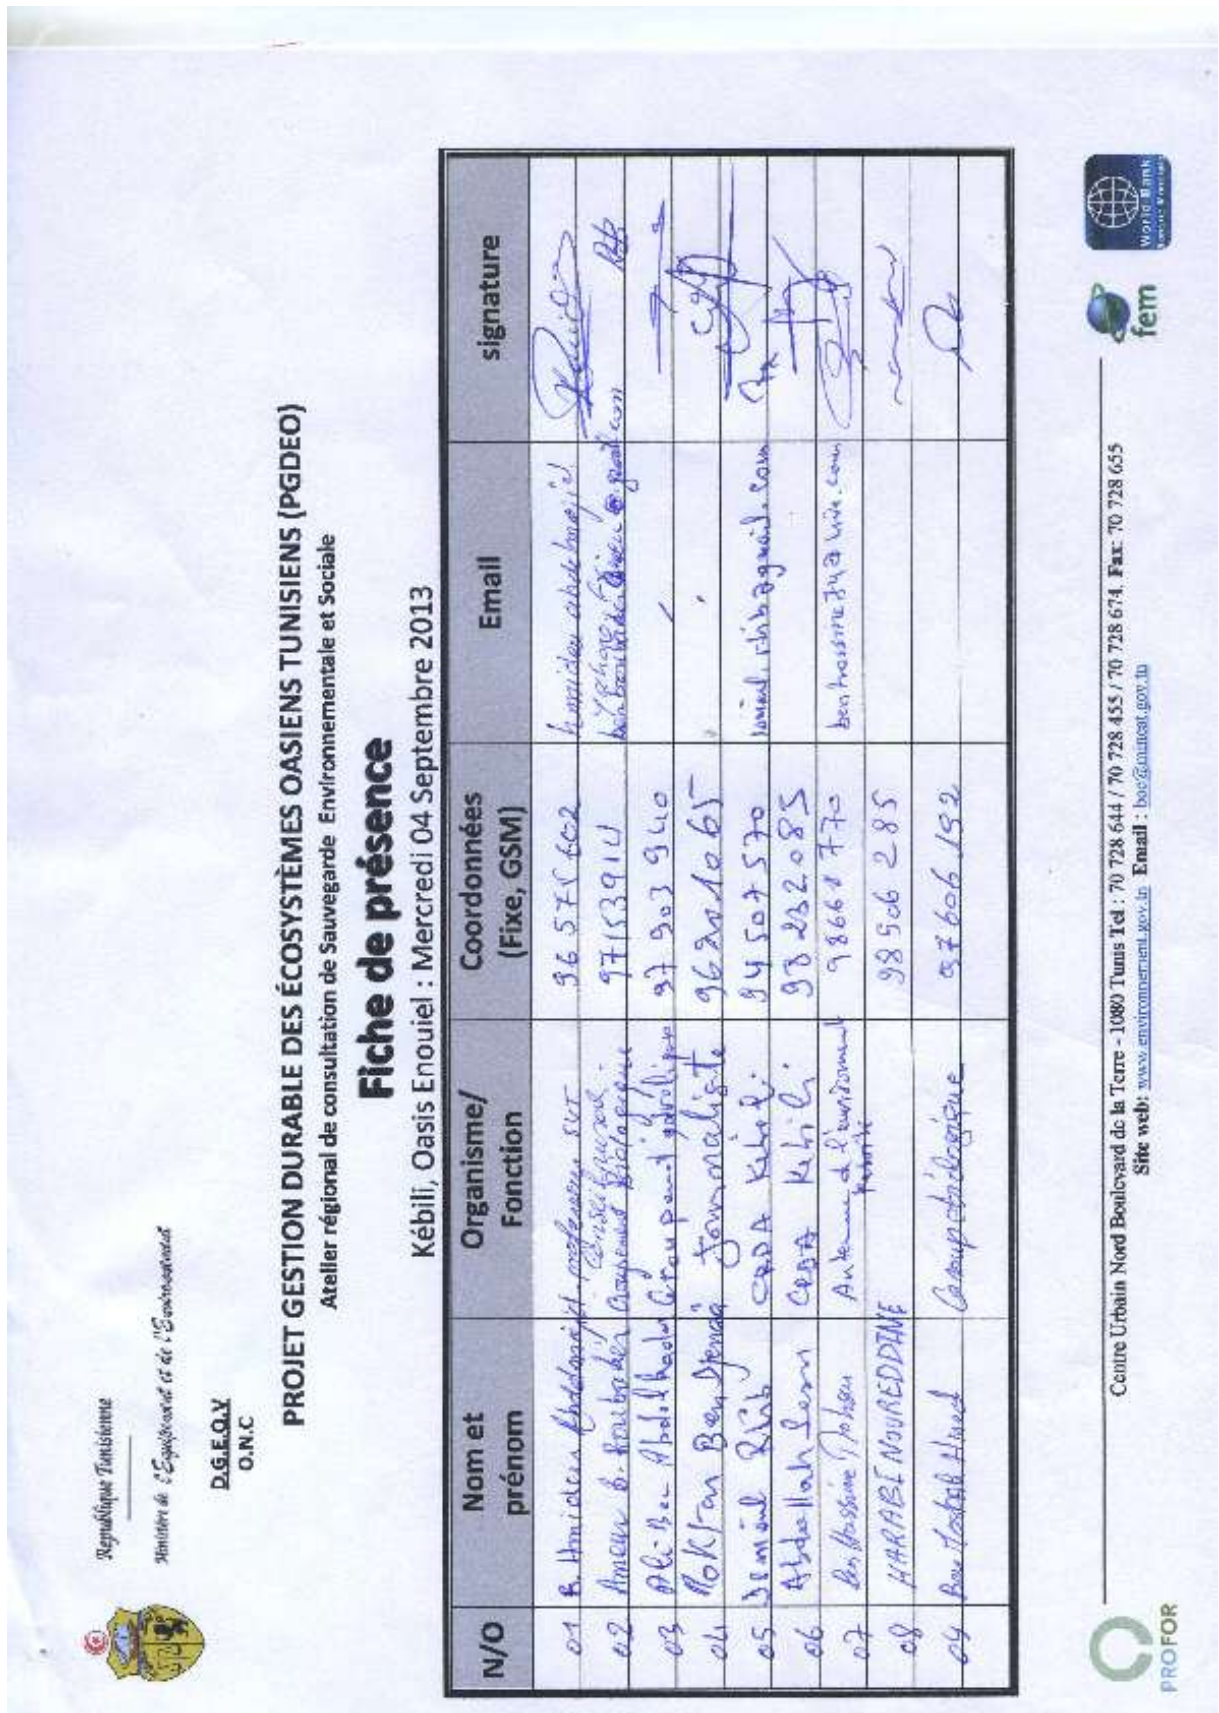 République Tunisienne
Ministère de l'Equipement et de l'Environnement
D.G.E.Q.V
O.N.C
PROJET GESTION DURABLE DES ÉCOSYSTÈMES OASIENS TUNISIENS (PGDEO)
Atelier régional de consultation de Sauvegarde Environnementale et Sociale
Fiche de présence
Kébili, Oasis Enouiel : Mercredi 04 Septembre 2013
N/O Nom et prénom Organisme/ Fonction Coordonnées (Fixe, GSM) Email signature
01 B. Hmiden Abdelmajid professeur SVT 96 575 602 hmiden abdelmajid
02 Ameur B. Boubaker Groupement Biologique 97153914 @gmail.com
03 Ali Ben Abdelkader Groupement 97 903 940
04 Moktar Ben Journaliste 96201065
05 Jemaïl Rhib CRDA Kebili 94 507 570
06 Abdellah CRDA Kebili 98 232 085
07 Ben Hassine Mohsen Antenne de l'environnement 98661 770
08 HARABI NOUREDDINE 98 906 285
09 Ben 97606.192
PROFOR
Centre Urbain Nord Boulevard de la Terre - 1080 Tunis Tel : 70 728 644 / 70 728 455 / 70 728 674. Fax: 70 728 655
Site web: www.environnement.gov.tn Email : boc@mineat.gov.tn
fem
World Bank